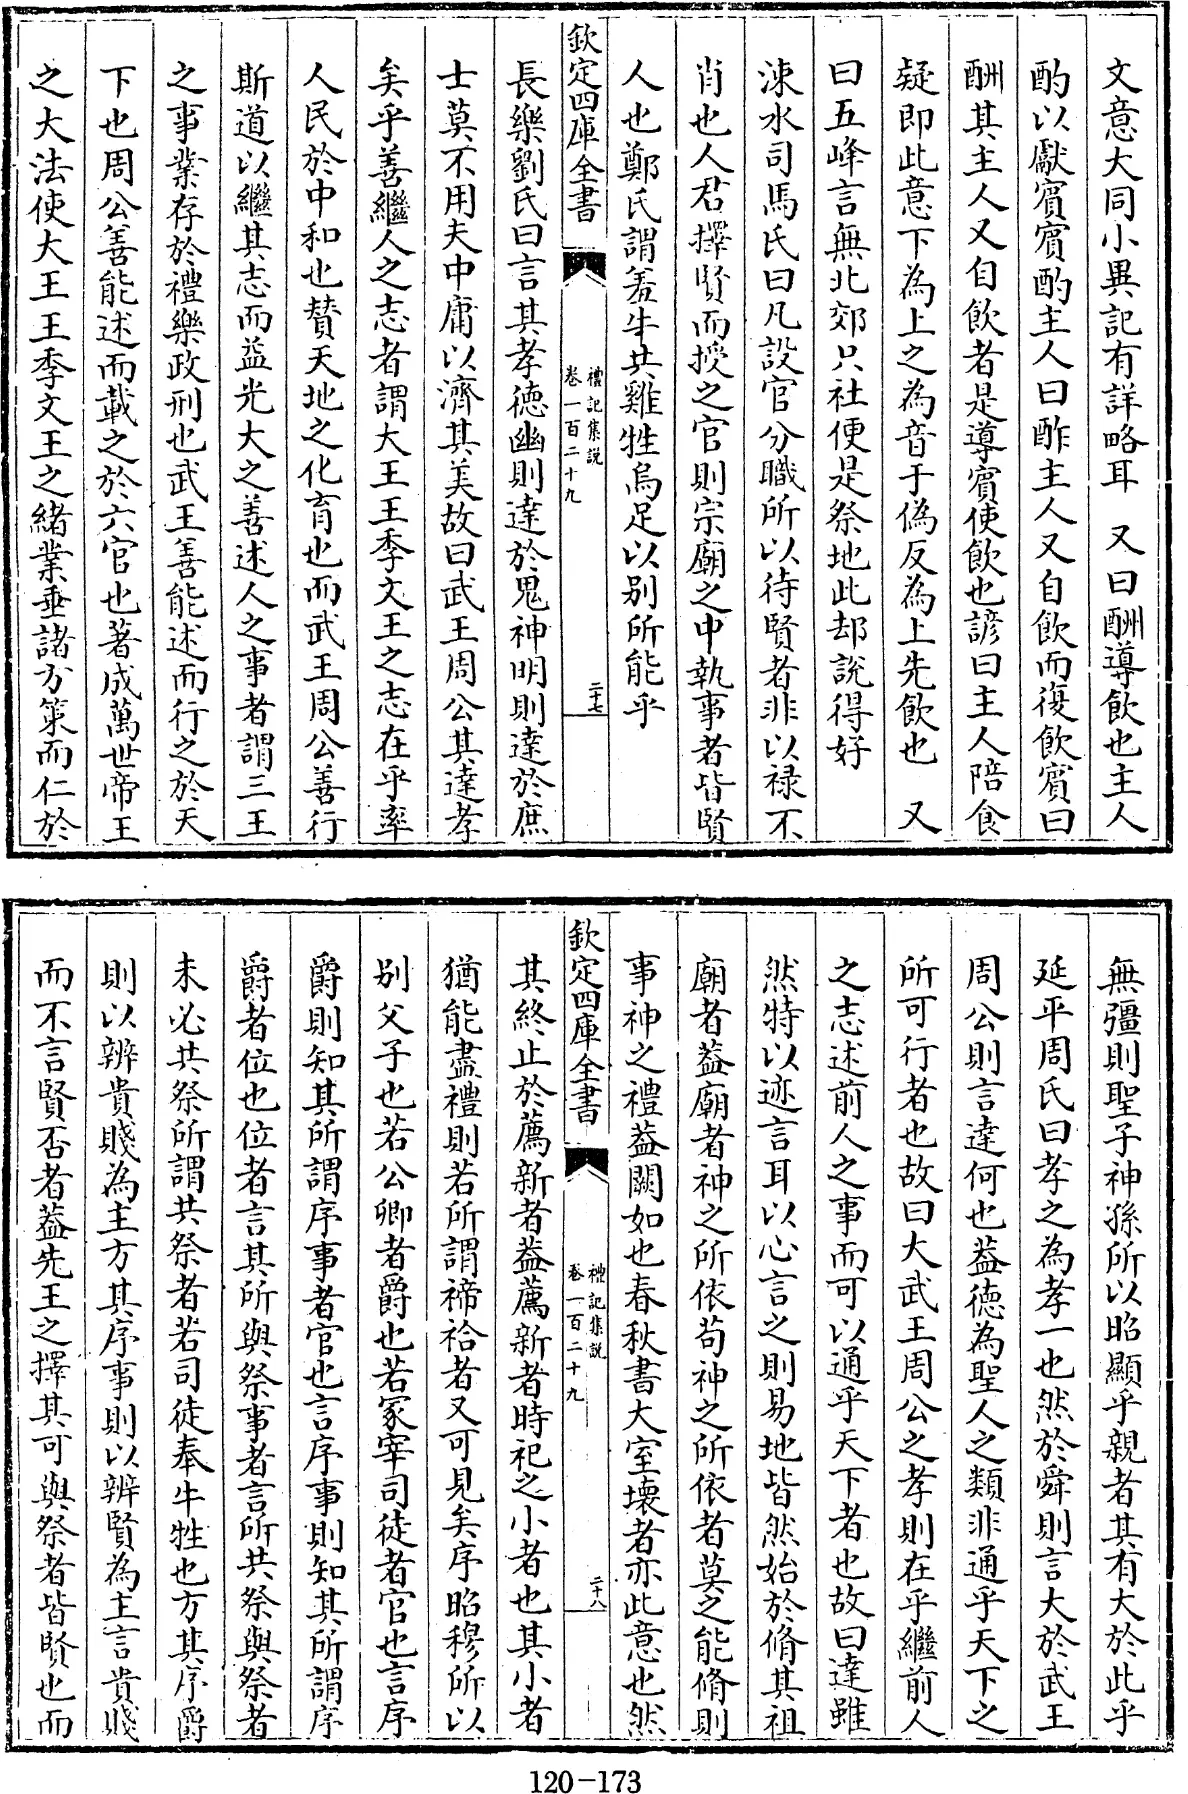 文意大同小異記有詳略耳　又曰酬導飲也主人
酌以獻賓賓酌主人曰酢主人又自飲而復飲賓曰
酬其主人又自飲者是導賓使飲也諺曰主人陪食
疑即此意下為上之為音于偽反為上先飲也　又
曰五峰言無北郊只社便是祭地此却說得好
涑水司馬氏曰凡設官分職所以待賢者非以祿不
肖也人君擇賢而授之官則宗廟之中執事者皆賢
人也鄭氏謂羞牛共雞牲烏足以別所能乎
欽定四庫全書
禮記集說
卷一百二十九
二十七
長樂劉氏曰言其孝徳幽則達於鬼神明則達於庶
士莫不用夫中庸以濟其美故曰武王周公其達孝
矣乎善繼人之志者謂大王王季文王之志在乎率
人民於中和也賛天地之化育也而武王周公善行
斯道以繼其志而益光大之善述人之事者謂三王
之事業存於禮樂政刑也武王善能述而行之於天
下也周公善能述而載之於六官也著成萬世帝王
之大法使大王王季文王之緒業垂諸方策而仁於
無彊則聖子神孫所以昭顯乎親者其有大於此乎
延平周氏曰孝之為孝一也然於舜則言大於武王
周公則言達何也葢徳為聖人之類非通乎天下之
所可行者也故曰大武王周公之孝則在乎繼前人
之志述前人之事而可以通乎天下者也故曰達雖
然特以迹言耳以心言之則易地皆然始於脩其祖
廟者葢廟者神之所依茍神之所依者莫之能脩則
事神之禮葢闕如也春秋書大室壊者亦此意也然
欽定四庫全書
禮記集說
卷一百二十九
二十八
其終止於薦新者葢薦新者時祀之小者也其小者
猶能盡禮則若所謂禘祫者又可見矣序昭穆所以
別父子也若公卿者爵也若冢宰司徒者官也言序
爵則知其所謂序事者官也言序事則知其所謂序
爵者位也位者言其所與祭事者言所共祭與祭者
未必共祭所謂共祭者若司徒奉牛牲也方其序爵
則以辨貴賤為主方其序事則以辨賢為主言貴賤
而不言賢否者葢先王之擇其可與祭者皆賢也而
120-173